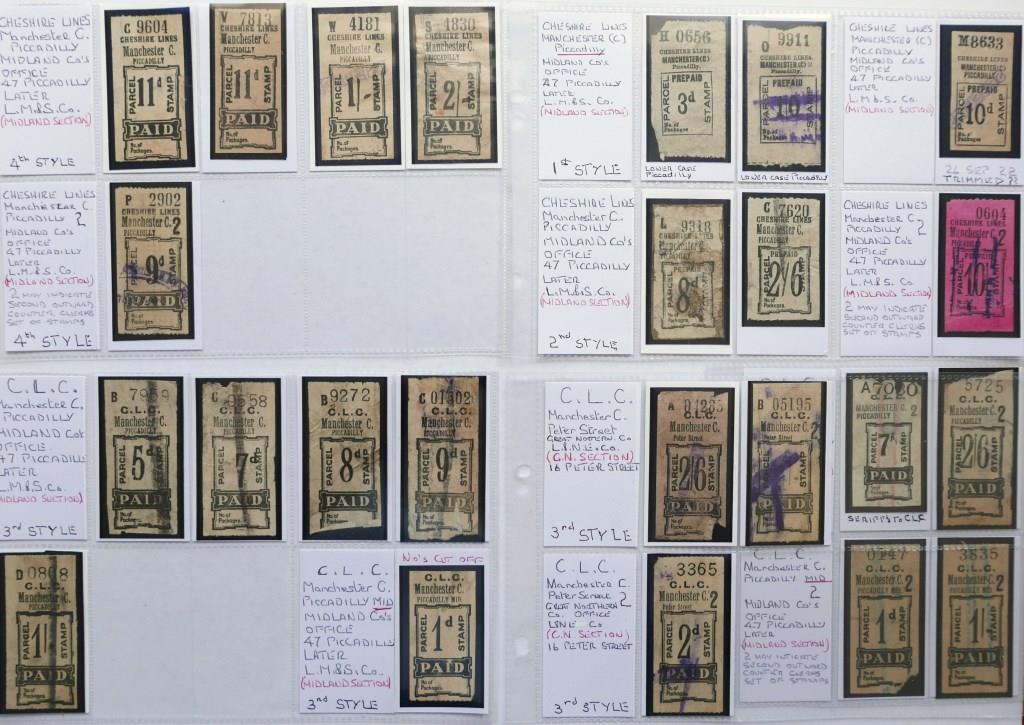 CHESHIRE LINES
Manchester C.
PICCADILLY
MIDLAND Co's
OFFICE
47 PICCADILLY
LATER
L.M.&S. Co.
(MIDLAND SECTION)
4th STYLE
C 9604
CHESHIRE LINES
Manchester C.
PICCADILLY
PARCEL
11d
STAMP
PAID
No. of
Packages.
V 7813
CHESHIRE LINES
Manchester C.
PICCADILLY
PARCEL
11d
STAMP
PAID
No. of
Packages.
W 4181
CHESHIRE LINES
Manchester C.
PICCADILLY
PARCEL
1/-
STAMP
PAID
No. of
Packages.
S 4830
CHESHIRE LINES
Manchester C.
PICCADILLY
PARCEL
2/-
STAMP
PAID
No. of
Packages.
CHESHIRE LINES
MANCHESTER (C)
Piccadilly
MIDLAND Co's
OFFICE
47 PICCADILLY
LATER
L.M.&S. Co.
(MIDLAND SECTION)
1st STYLE
H 0656
CHESHIRE LINES
MANCHESTER (C)
Piccadilly.
PREPAID
PARCEL
3d
STAMP
No. of
Packages
LOWER CASE
Piccadilly
O 9911
CHESHIRE LINES
MANCHESTER (C)
Piccadilly.
PREPAID
PARCEL
STAMP
No. of
Packages
LOWER CASE Piccadilly
CHESHIRE LINES
MANCHESTER (C)
PICCADILLY
MIDLAND Co's
OFFICE
47 PICCADILLY
LATER
L.M.&S. Co.
(MIDLAND SECTION)
M8633
CHESHIRE LINES
MANCHESTER (C)
PICCADILLY.
PREPAID
PARCEL
10d
STAMP
No. of
Packages
TRIMMED
CHESHIRE LINES
Manchester C.
PICCADILLY 2
MIDLAND Co's
OFFICE
47 PICCADILLY
LATER
L.M.&S. Co.
(MIDLAND SECTION)
2 MAY INDICATE
SECOND OUTWARD
COUNTER CLERKS
SET OF STAMPS
4th STYLE
P 2902
CHESHIRE LINES
Manchester C. 2
PICCADILLY
PARCEL
9d
STAMP
PAID
No. of
Packages.
CHESHIRE LINES
Manchester C.
PICCADILLY
MIDLAND Co's
OFFICE
47 PICCADILLY
LATER
L.M.&S. Co.
(MIDLAND SECTION)
2nd STYLE
L 9318
Manchester C.
PICCADILLY
PREPAID
PARCEL
8d
STAMP
C 7620
CHESHIRE LINES
Manchester C.
PICCADILLY
PREPAID
PARCEL
2/6
STAMP
No. of
Packages.
CHESHIRE LINES
Manchester C
PICCADILLY 2
MIDLAND Co's
OFFICE
47 PICCADILLY
LATER
L.M.&S. Co.
(MIDLAND SECTION)
2 MAY INDICATE
SECOND OUTWARD
COUNTER CLERKS
SET OF STAMPS
0604
CHESHIRE LINES
Manchester C. 2
PICCADILLY
PREPAID
PARCEL
10/-
STAMP
C.L.C.
Manchester C.
PICCADILLY
MIDLAND Co's
OFFICE.
47 PICCADILLY
LATER
L.M.&S. Co.
(MIDLAND SECTION)
3rd STYLE
B 7959
C.L.C.
Manchester C.
PICCADILLY
PARCEL
5d
STAMP
PAID
No. of
Packages.
C.L.C.
Manchester C.
PICCADILLY
PARCEL
7d
STAMP
PAID
No. of
Packages.
B 9272
C.L.C.
Manchester C.
PICCADILLY
PARCEL
8d
STAMP
PAID
No. of
Packages.
C 01302
C.L.C.
Manchester C.
PICCADILLY
PARCEL
9d
STAMP
PAID
No. of
Packages.
C.L.C.
Manchester C.
Peter Street
GREAT NORTHERN Co
L.&.N.E.Co.
(G.N. SECTION)
16 PETER STREET
3rd STYLE
C.L.C.
Manchester C.
Peter Street
PARCEL
2/6
STAMP
PAID
No. of
Packages.
B 05195
C.L.C.
Manchester C. 2
PARCEL
STAMP
PAID
No. of
Packages.
A7020
MANCHESTER C. 2
PICCADILLY
PARCEL
7d
STAMP
PAID
No. of
Packages.
SERIFS TO CLC
5725
C.L.C.
Manchester C. 2
PICCADILLY
PARCEL
2/6
STAMP
PAID
No. of
Packages.
D 0808
C.L.C.
Manchester C.
PICCADILLY
PARCEL
1/-
STAMP
PAID
No. of
Packages.
C.L.C.
Manchester C.
PICCADILLY MID
MIDLAND Co's
OFFICE
47 PICCADILLY
LATER
L.M.&S. Co.
(MIDLAND SECTION)
3rd STYLE
No's CUT OFF
C.L.C.
Manchester C.
PICCADILLY MID.
PARCEL
1d
STAMP
PAID
No. of
Packages.
C.L.C.
Manchester C.
Peter Street 2
GREAT NORTHERN
Co. OFFICE
LONE Co
(G.N. SECTION)
16 PETER STREET
3rd STYLE
3365
C.L.C.
Manchester C. 2
Peter Street
PARCEL
2d
STAMP
PAID
No. of
Packages.
C.L.C.
Manchester C.
PICCADILLY MID
2
MIDLAND Co's
OFFICE
47 PICCADILLY
LATER
(MIDLAND SECTION)
2 MAY INDICATE
SECOND OUTWARD
COUNTER CLERKS
SET OF STAMPS
0147
C.L.C.
Manchester C. 2
PICCADILLY MID
PARCEL
1d
STAMP
PAID
No. of
Packages.
3835
C.L.C.
Manchester C. 2
PICCADILLY MID
PARCEL
1/-
STAMP
PAID
No. of
Packages.